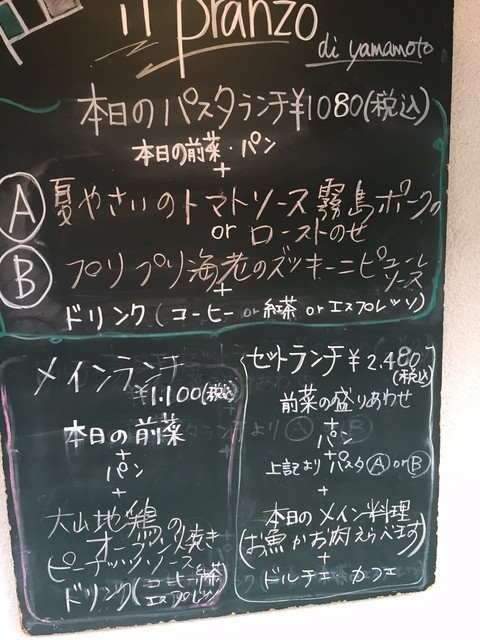 il pranzo
di yamamoto
本日のパスタランチ¥1080(税込)
本日の前菜・パン
+
Ⓐ 夏やさいのトマトソース霧島ポークの
or ローストのせ
Ⓑ プリプリ海老のズッキーニピューレ
ソース
+
ドリンク(コーヒー or 紅茶 or エスプレッソ)
メインランチ
¥1.100(税込)
本日の前菜
+
パン
+
大山地鶏の
オーブン焼き
ピーナッツソース
ドリンク(コーヒー 紅茶
エスプレッソ)
セットランチ ¥2.480
(税込)
前菜の盛りあわせ
+
パン
+
上記よりパスタⒶorⒷ
+
本日のメイン料理
(お魚かお肉えらべます)
+
ドルチェ・カフェ